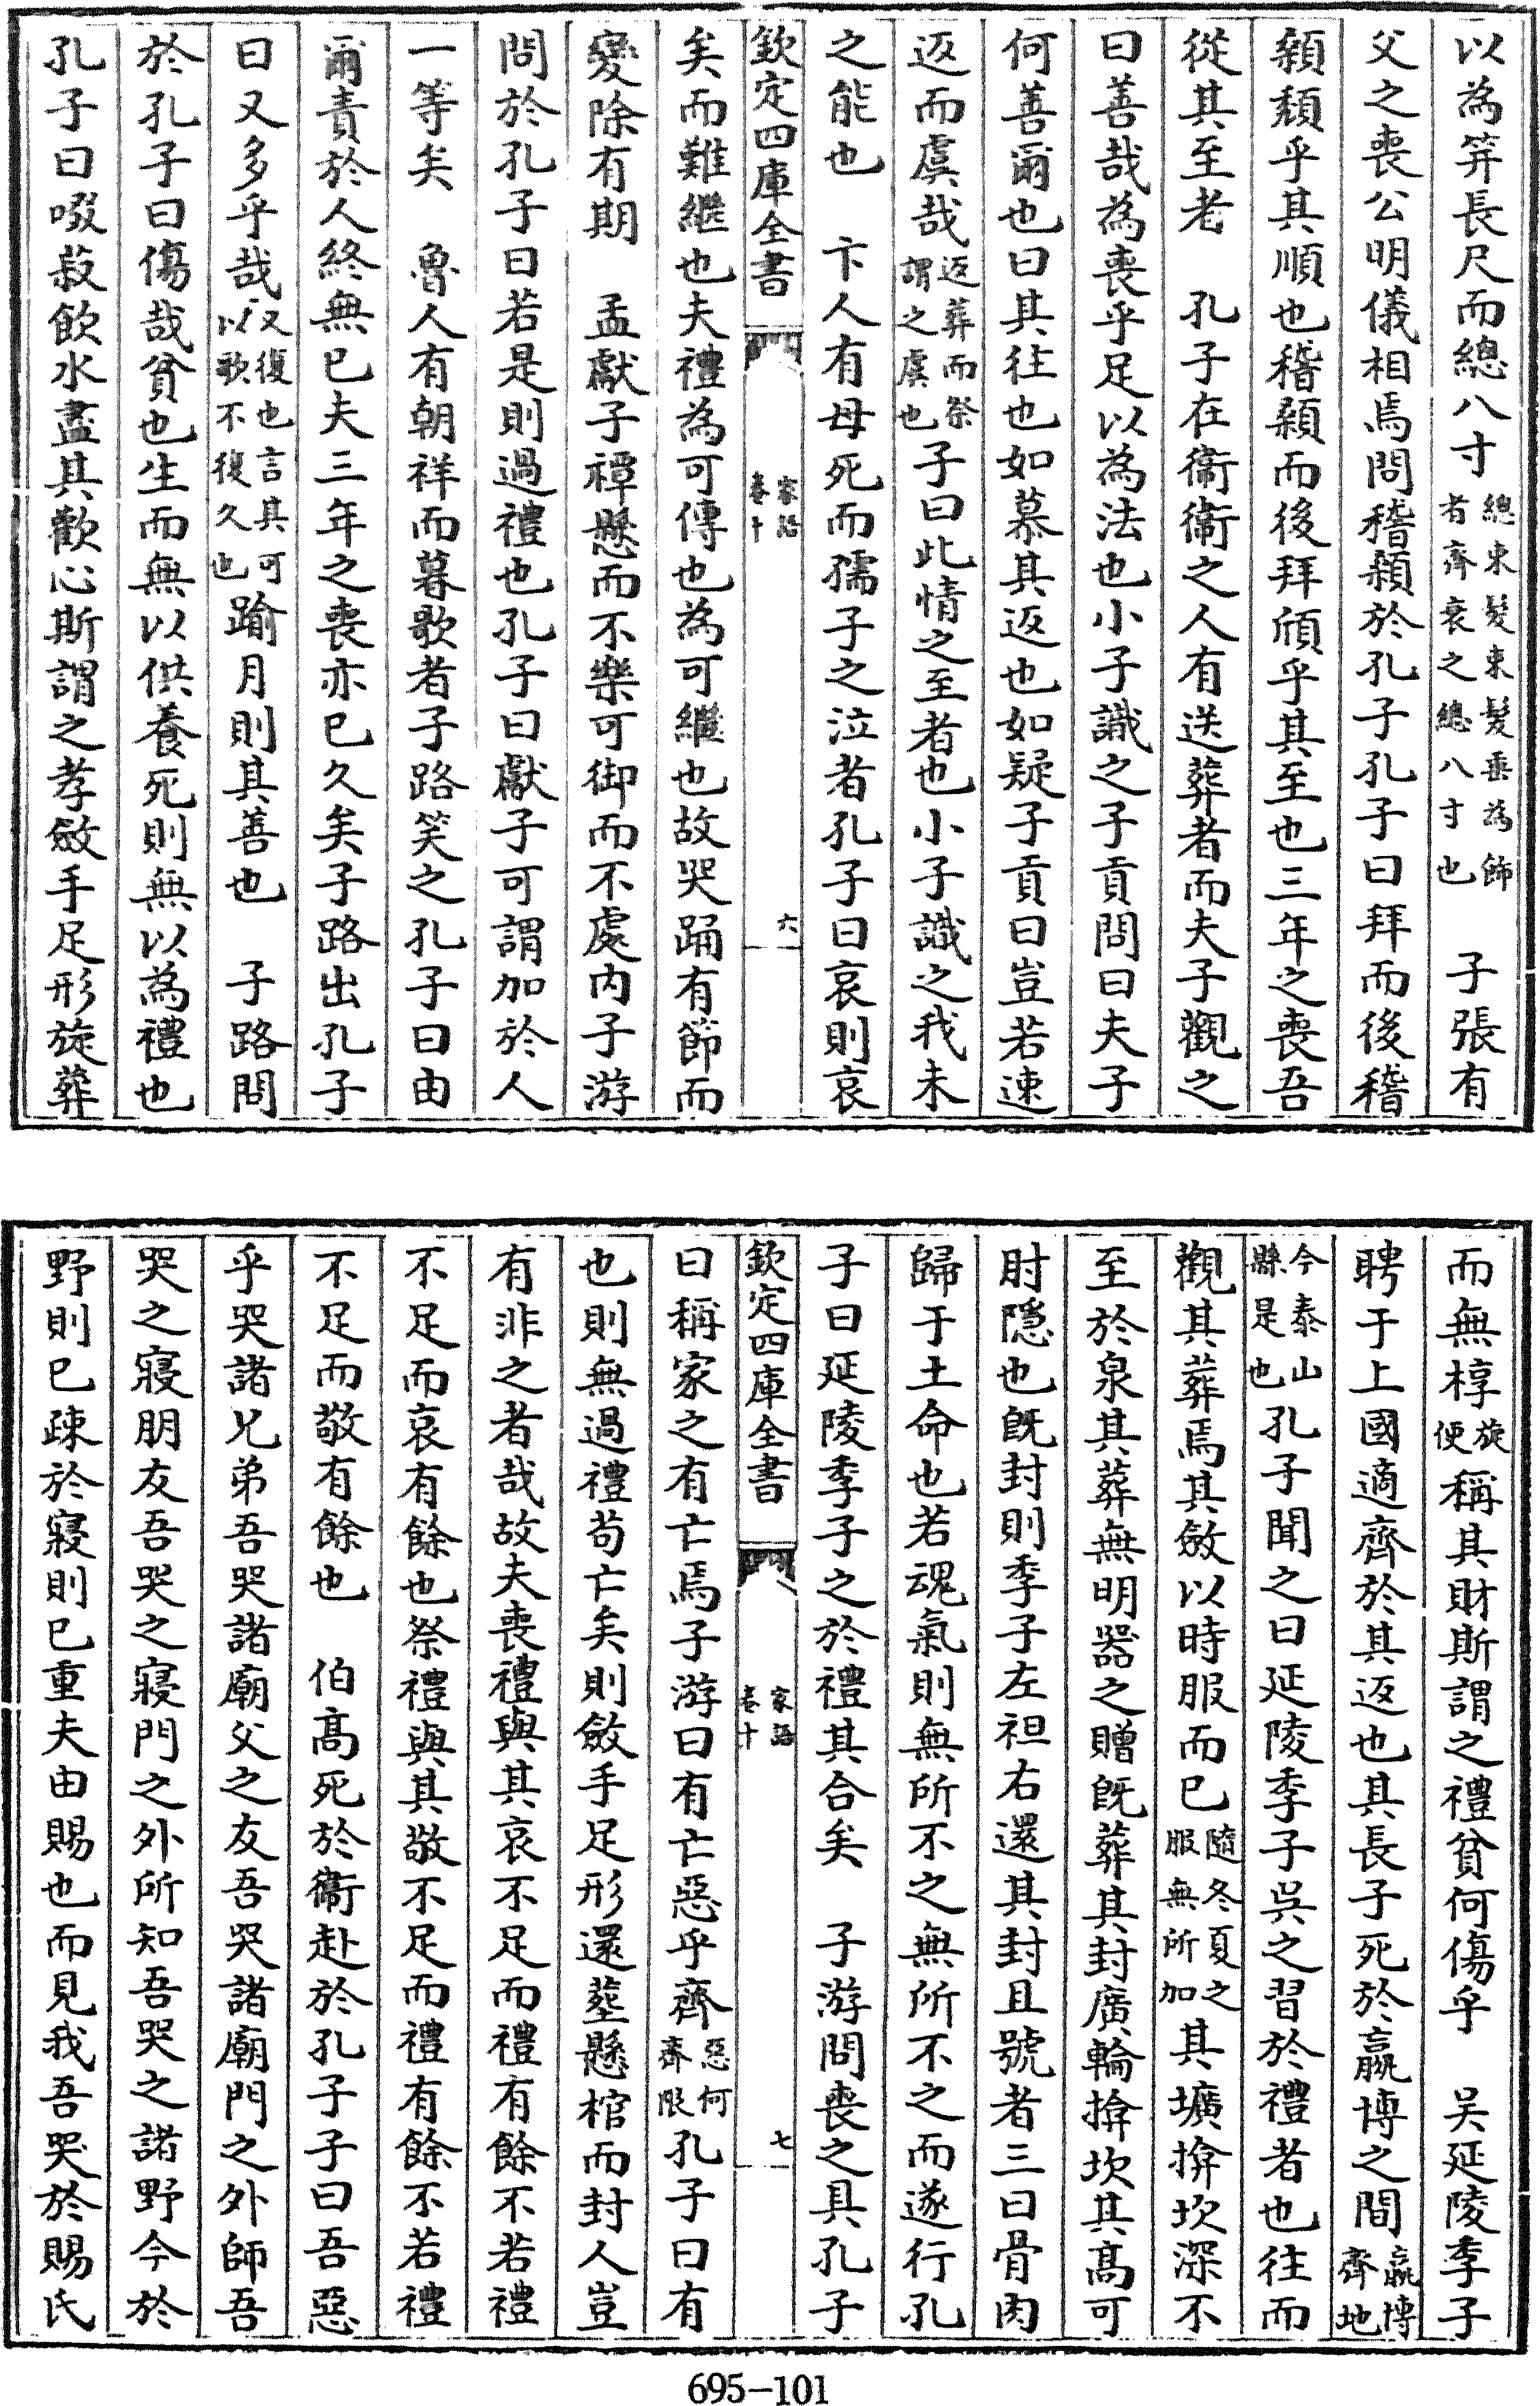 以為笄長尺而總八寸總束髮束髮垂為飾者齊衰之總八寸也　子張有
父之喪公明儀相焉問稽顙於孔子孔子曰拜而後稽
顙頽乎其順也稽顙而後拜頎乎其至也三年之喪吾
從其至者　孔子在衞衞之人有送葬者而夫子觀之
曰善哉為喪乎足以為法也小子識之子貢問曰夫子
何善爾也曰其往也如慕其返也如疑子貢曰豈若速
返而虞哉返葬而祭謂之虞也子曰此情之至者也小子識之我未
之能也　卞人有母死而孺子之泣者孔子曰哀則哀
欽定四庫全書　家語卷十　六
矣而難繼也夫禮為可傳也為可繼也故哭踊有節而
變除有期　孟獻子禫懸而不樂可御而不處內子游
問於孔子曰若是則過禮也孔子曰獻子可謂加於人
一等矣　魯人有朝祥而暮歌者子路笑之孔子曰由
爾責於人終無已夫三年之喪亦已久矣子路出孔子
曰又多乎哉又復也言其可以歌不復久也踰月則其善也　子路問
於孔子曰傷哉貧也生而無以供養死則無以為禮也
孔子曰啜菽飲水盡其歡心斯謂之孝斂手足形旋葬
而無椁旋便稱其財斯謂之禮貧何傷乎　吴延陵季子
聘于上國適齊於其返也其長子死於嬴博之間嬴博齊地
今泰山縣是也孔子聞之曰延陵季子吳之習於禮者也往而
觀其葬焉其斂以時服而已隨冬夏之服無所加其壙揜坎深不
至於泉其葬無明器之贈既葬其封廣輪揜坎其高可
肘隱也既封則季子左袒右還其封且號者三曰骨肉
歸于土命也若魂氣則無所不之無所不之而遂行孔
子曰延陵季子之於禮其合矣　子游問喪之具孔子
欽定四庫全書　家語卷十　七
曰稱家之有亡焉子游曰有亡惡乎齊惡何齊限孔子曰有
也則無過禮苟亡矣則斂手足形還葬懸棺而封人豈
有非之者哉故夫喪禮與其哀不足而禮有餘不若禮
不足而哀有餘也祭禮與其敬不足而禮有餘不若禮
不足而敬有餘也　伯高死於衞赴於孔子子曰吾惡
乎哭諸兄弟吾哭諸廟父之友吾哭諸廟門之外師吾
哭之寢朋友吾哭之寢門之外所知吾哭之諸野今於
野則已疎於寢則已重夫由賜也而見我吾哭於賜氏
695-101